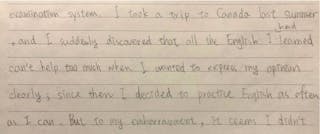 examination system. I took a trip to Canada last summer
, and I suddenly discovered that all the English I had learned
can't help too much when I wanted to express my opinion
clearly; since then I decided to practice English as often
as I can. But to my embarrassment, it seems I didn't